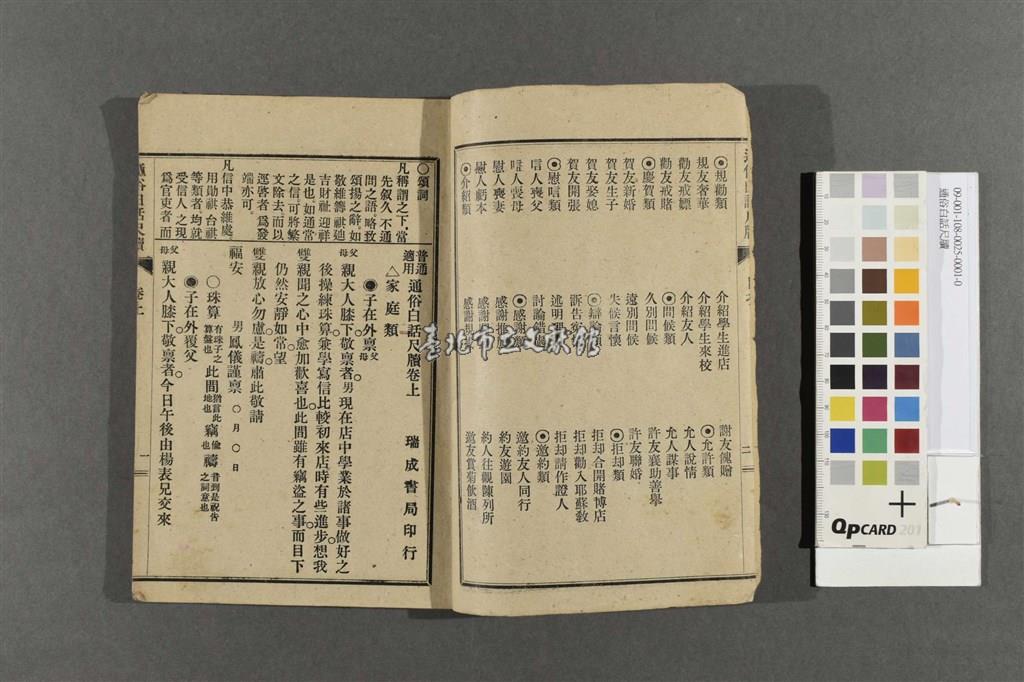 ◉規勸類
規友奢華
勸友戒嫖
勸友戒賭
◉慶賀類
賀友新婚
賀友生子
賀友娶媳
賀友開張
◉慰唁類
唁人喪父
唁人喪母
慰人喪妻
慰人虧本
◉介紹類
介紹學生進店
介紹學生來校
介紹友人
◉問候類
久別問候
遠別問候
失候言懷
◉辯論類
訴告
述明理
討論錯
◉感謝類
感謝推
感謝
謝友餽贈
◉允許類
允人說情
允人謀事
許友襄助善舉
許友聯婚
◉拒却類
拒却合開賭博店
拒却勸入耶穌教
拒却請作證人
◉邀約類
邀約友人同行
約友遊園
約人往觀陳列所
邀友賞菊飲酒
二
○頌詞
凡稱謂之下當
先敘久不通
問之語略致
頌揚之辭如
敬維籌祺迪
吉財祉迎祥
是也如通常
之信可將繁
文除去而以
逕啓者爲發
端亦可
凡信中恭維處
用助祺台祺
等類者均就
受信人之現
爲官吏者而
普通適用 通俗白話尺牘卷上
瑞成書局印行
△家庭類
◉子在外禀父母
父母親大人膝下敬禀者男現在店中學業於諸事做好之
後操練珠算兼學寫信比較初來店時有些進步想我
雙親聞之心中愈加歡喜也此間雖有竊盜之事而目下
仍然安靜如常望
雙親放心勿慮是禱肅此敬請
福安
男鳳儀謹禀 ○月○日
○珠算 有珠子之算盤也 此間 猶言此地也 竊 偷也 禱 昔到是祝告之詞意也
◉子在外覆父
父母親大人膝下敬禀者今日午後由楊表兄交來
通俗白話尺牘
卷上
一
臺北市立文獻館
09-001-108-0025-0001-0
通俗白話尺牘
QPCARD 201